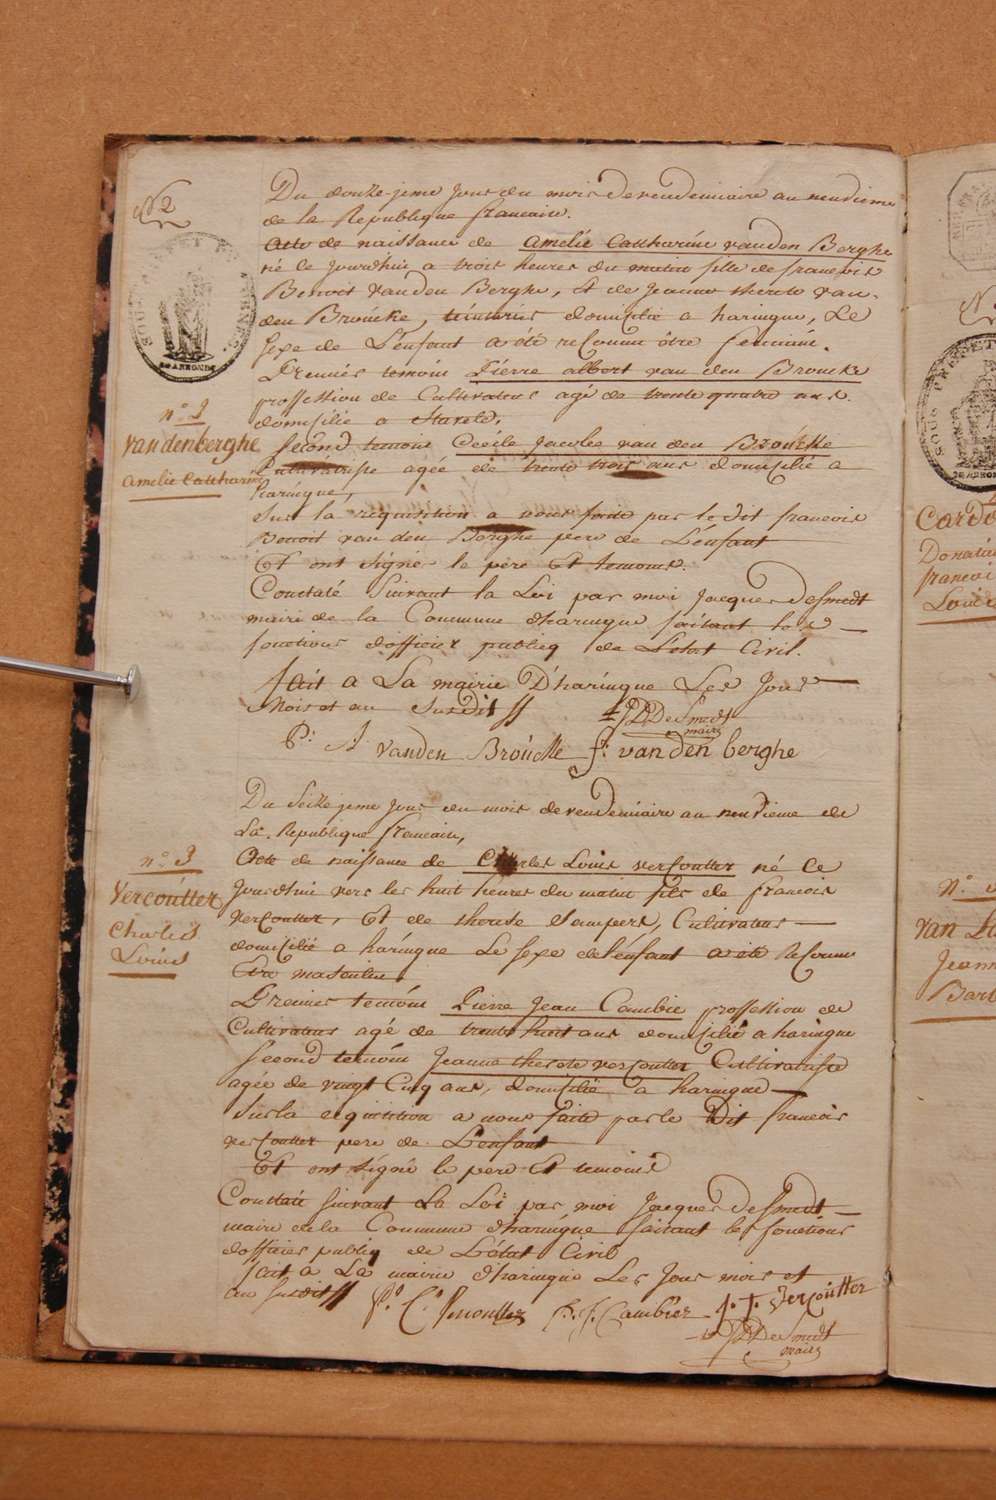 N 2
Du douze-jeme Jour du mois de vendemiaire au neudieme
de la Republique francaise.
Acte de naissance de Amelie Cattharine vanden Berghe
né ce jourdhui a trois heures du matin fille de francois
Benoit vanden Berghe, et de jeanne therese van-
den Broucke, domicilié a haringue, Le
sexe de L'enfant a été reconnu être feminin.
Premier temoin Pierre albert van den Broucke
proffession de Cultivateur agé de trente quatre ans
domicilié a Stavele,
n.o 2
vandenberghe
Amelie Cattharine
second temoin Cecile Jacobee van den Broucke
agée de trente trois ans domicilié a
haringue,
Sur la requisition a nous faite par le dit francois
Benoit van den Berghe pere de L'enfant
Et ont signé le père Et temoins.
Constaté suivant la Loi par moi Jacques Desmedt
maire de la Commune d'haringue faisant les
fonctions dofficier publicq de Letat Civil.
fait a La mairie D'haringue Les Jour
Mois et an Susdit
Desmedt
maire
P: A vanden Broucke f: vanden berghe
Du seize-jeme jour du mois de vendemiaire au neudieme de
La Republique francaise,
n.o 3
Vercoutter
Charles
Louis
Acte de naissance de Charles Louis vercoutter né ce
Jourdhui vers les huit heures du matin fils de francois
vercoutter, Et de therese Sempere, Cultivateur
domicilié a haringue Le sexe de lénfant a été Reconnu
Etre masculin
Premier temoin Pierre Jean Cambie proffession de
Cultivateur agé de trente huit ans domicilié a haringue
second temoin Jeanne therese vercoutter Cultivatrise
agée de vingt Cinq ans, domicilié a haringue
Sur la eqisition a nous faite par le Dit francois
vercoutter pere de L'enfant
Et ont signé le pere Et temoins
Constaté suivant La Loi par moi Jacques Desmedt
maire de la Commune d'haringue faisant les fonctions
dofficier publiq de Létat Civil
fait a La mairie d'haringue Les Jour mois et
an susdit
P. J. Cambier J. T. Vercoutter
Desmedt
maire
Donatien
francoi
Louis
van
Jeann
Barb